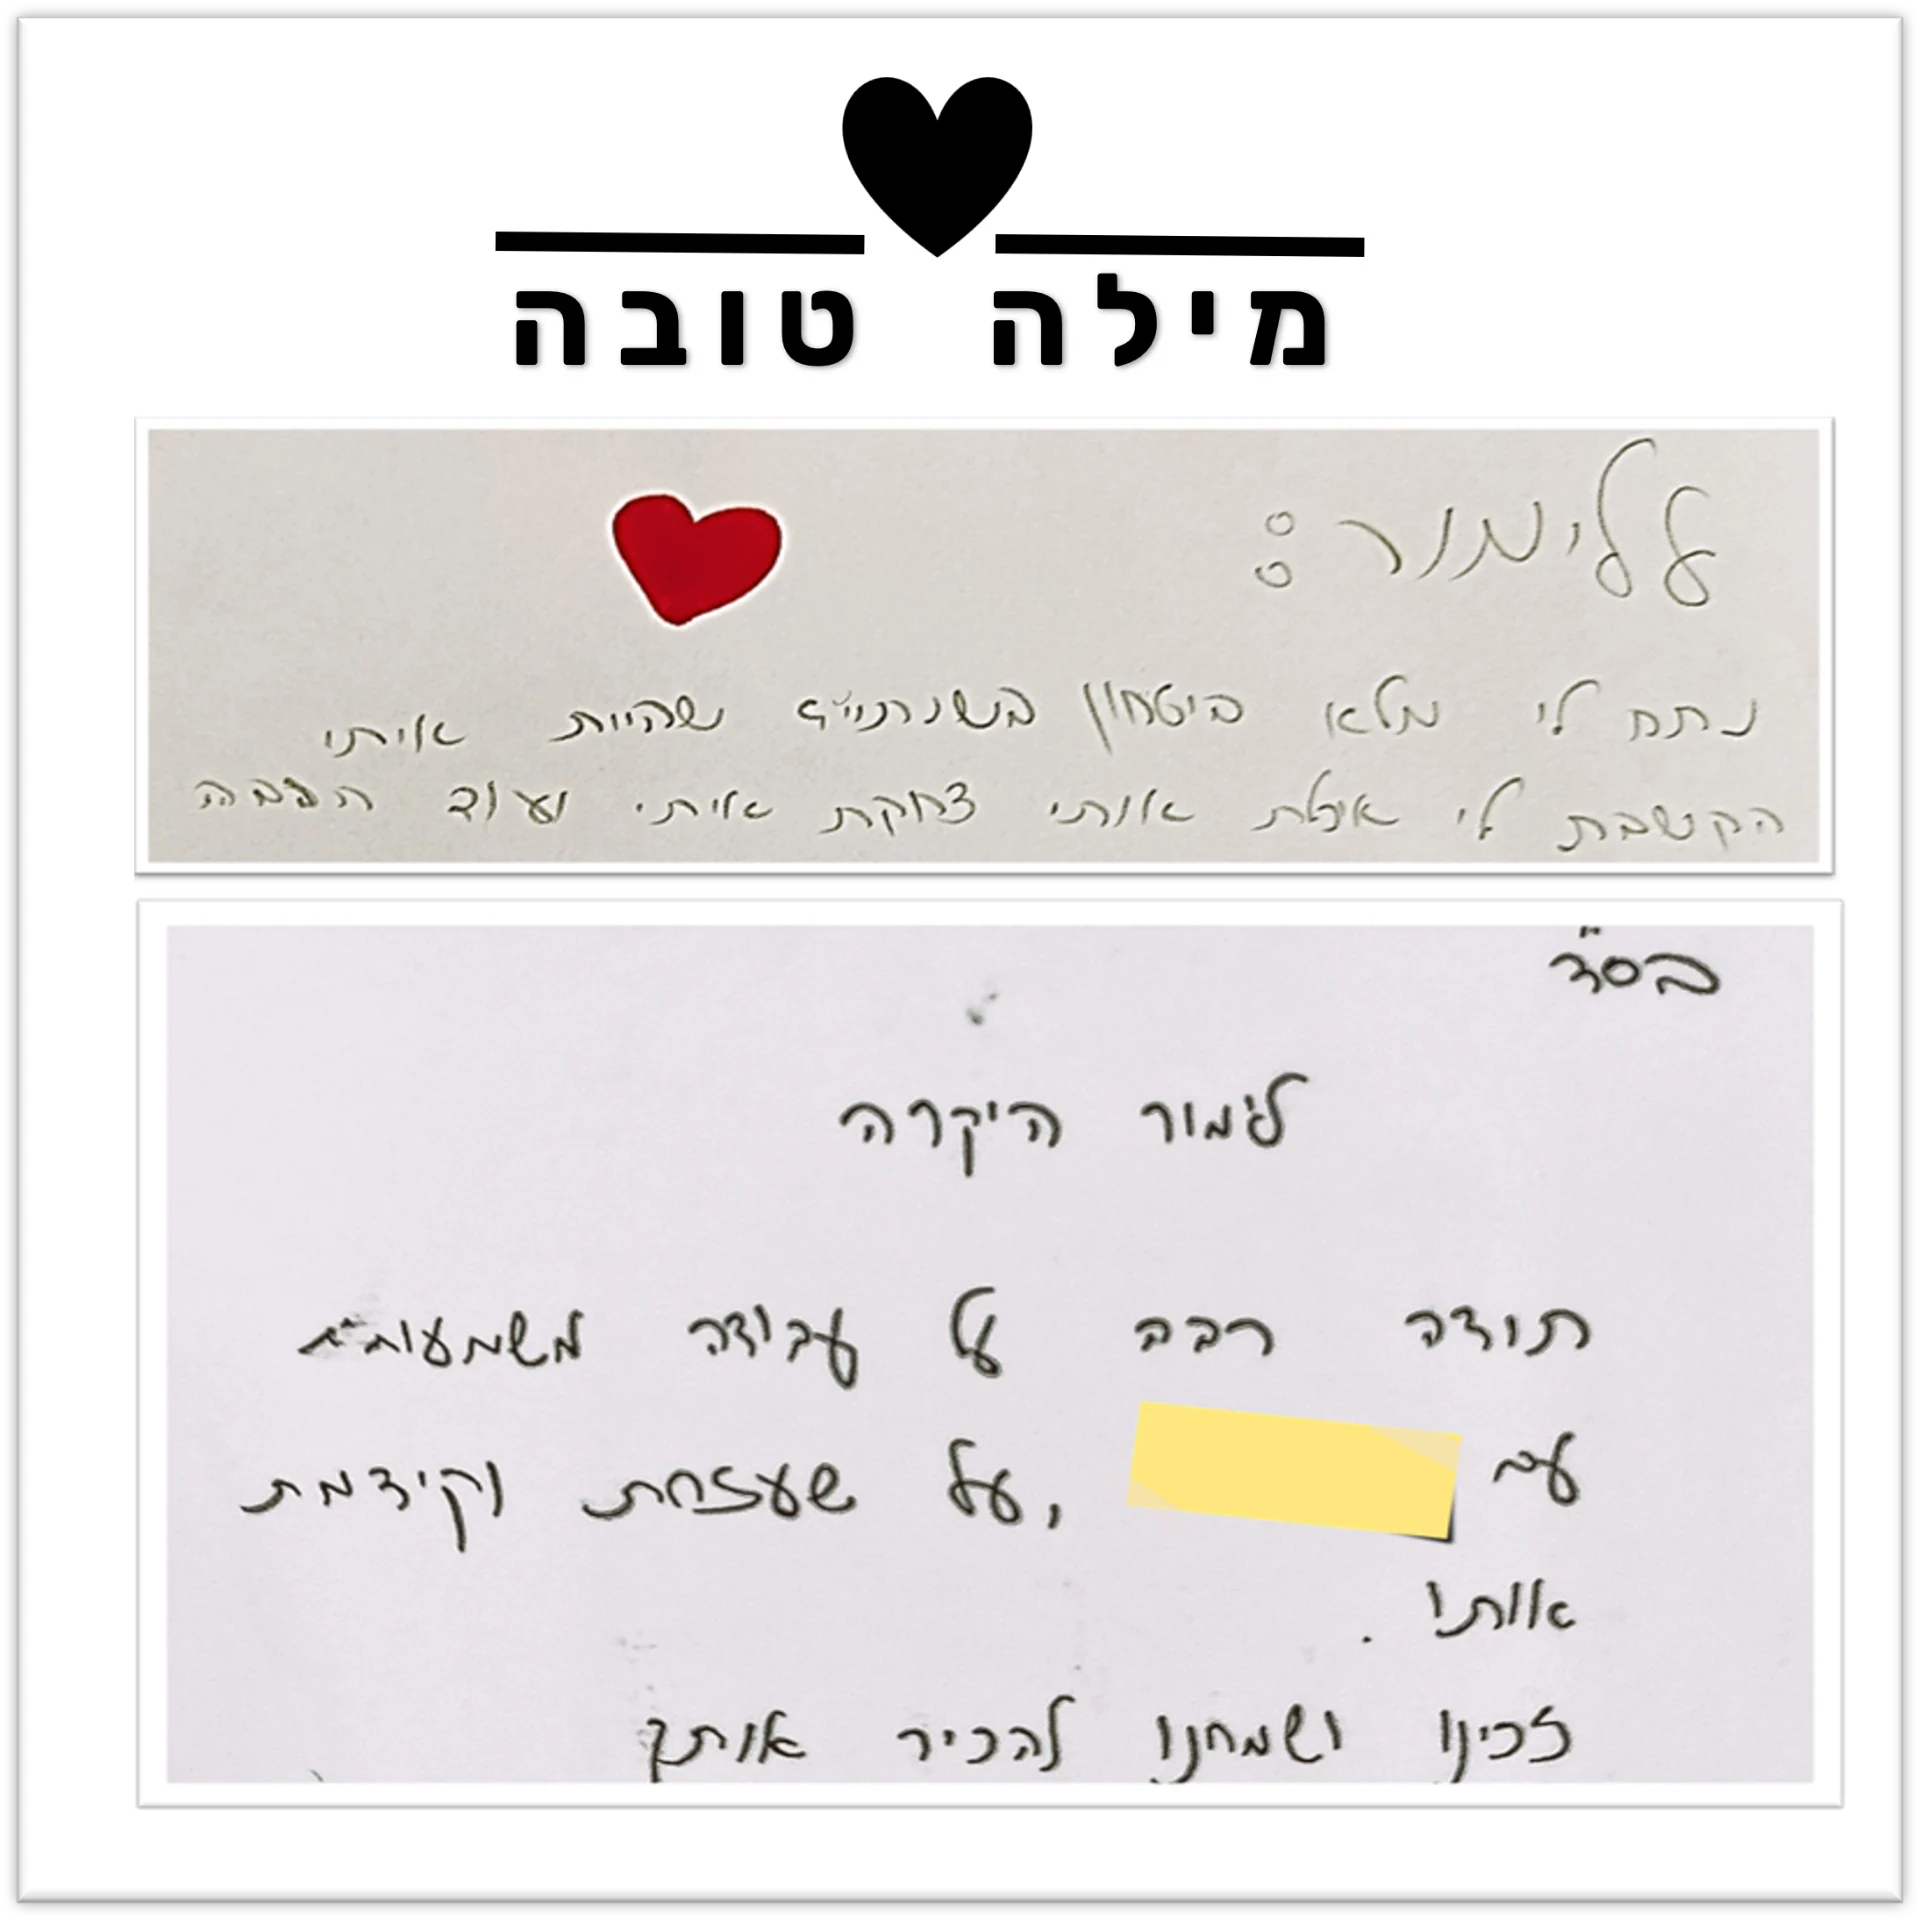 מילה טובה
עלימור:
נתת לי מלא ביטחון בשנתיים שהיית איתי
הקשבת לי אותי צחקת איתי ועוד הרבה
בס"ד
לימור היקרה
תודה רבה על עבודה משמעותית
עם ,על שעזרת וקידמת
אותי .
זכינו ושמחנו להכיר אותך